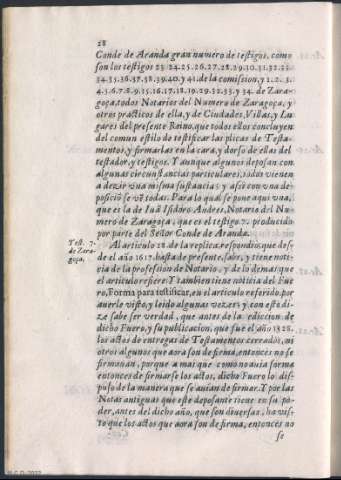 28
Conde de Aranda gran numero de testigos, como
son los testigos 23.24.25.26.27.28.29.30.31.32.33.
34.35.36.37.38.39.40.y 41.de la comission,y 1.2.3.
4.5.6.7.8.9.15.16.17.18.19.29.32.33.y 34. de Zara-
goça,todos Notarios del Numero de Zaragoça, y
otros practicos de ella, y de Ciudades, Villas, y Lu
gares del presente Reino,que todos ellos concluyen
del comun estilo de testificar las plicas de Testa-
mentos,y firmarlas en la cara, y dorso de ellas del
testador,y testigos. Y aunque algunos deposan con
algunas circunstancias particulares,todos vienen
a dezir vna misma sustancia; y assi con vna de-
posiciõ se vẽ todas. Para lo qual se pone aqui vna,
que es la de Iuã Isidoro Andres,Notario del Nu-
mero de Zaragoça , que es el testigo 7. producido
por parte del Señor Conde de Aranda.
Test. 7.
de Zara-
goça.
Al articulo 28. de la replica,respondio,que des-
de el año 1617.hasta de presente,sabe, y tiene noti-
cia de la profession de Notario, y de lo demas que
el articulo refiere: Y tambien tiene noticia del Fue
ro,Forma para testificar,en el articulo referido,por
auerlo visto,y leido algunas vezes; y con esto di-
ze sabe ser verdad , que antes de la edicion de
dicho Fuero, y su publicacion, que fue el año 1528.
los actos de entregas de Testamentos cerrados, ni
otros algunos que aora son de firma,entonces no se
firmauan, porque a mas que como no auia forma
entonces de firmarse los actos, dicho Fuero lo dis-
puso de la manera que se auian de firmar.Y por las
Notas antiguas que este deposante tiene en su po-
der,antes del dicho año, que son diuersas, ha vis-
to que los actos que aora son de firma, entonces no
se